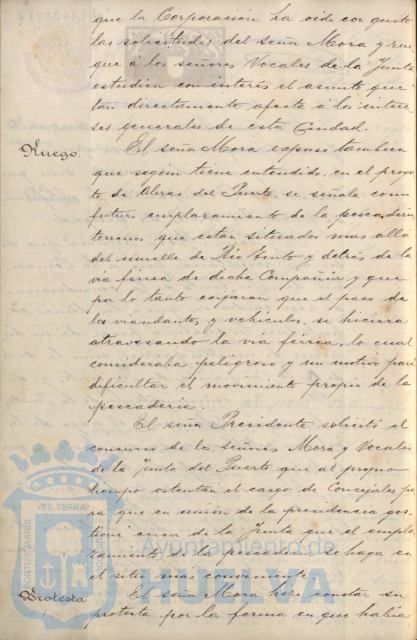 que la Corporación ha oido con gusto
las solicitudes del señor Mora y rue
que á los señores Vocales de la Junta
estudien con interés el asunto que
tan directamente afecta á los intere-
ses generales de esta Ciudad.
Ruego. El señor Mora expuso tambien
que segun tiene entendido, en el proyec
to de Obras del Puerto, se señala como
futuro emplazamiento de la pescaderia
terrenos que están situados mas allá
del muelle de Rio Tinto y detrás de la
via férrea de dicha Compañia y que
por lo tanto exijiran que el paso de
los viandantes y vehículos, se hiciera
atravesando la via férrea, lo cual
consideraba peligroso y un motivo para
dificultar el movimiento propio de la
pescaderia.
El señor Presidente solicitó el
concurso de los señores Mora y Vocales
de la Junta del Puerto que al propio
tiempo ostentan el cargo de Concejales pa
ra que en union de la presidencia ges-
tione cerca de la Junta que el empla
zamiento de la pescaderia se haga en
el sitio mas conveniente.
Protesta El señor Mora hizo constar su
protesta por la forma en que habia
PORTUS MARIS ET TERRAE
Ayuntamiento de
HUELVA